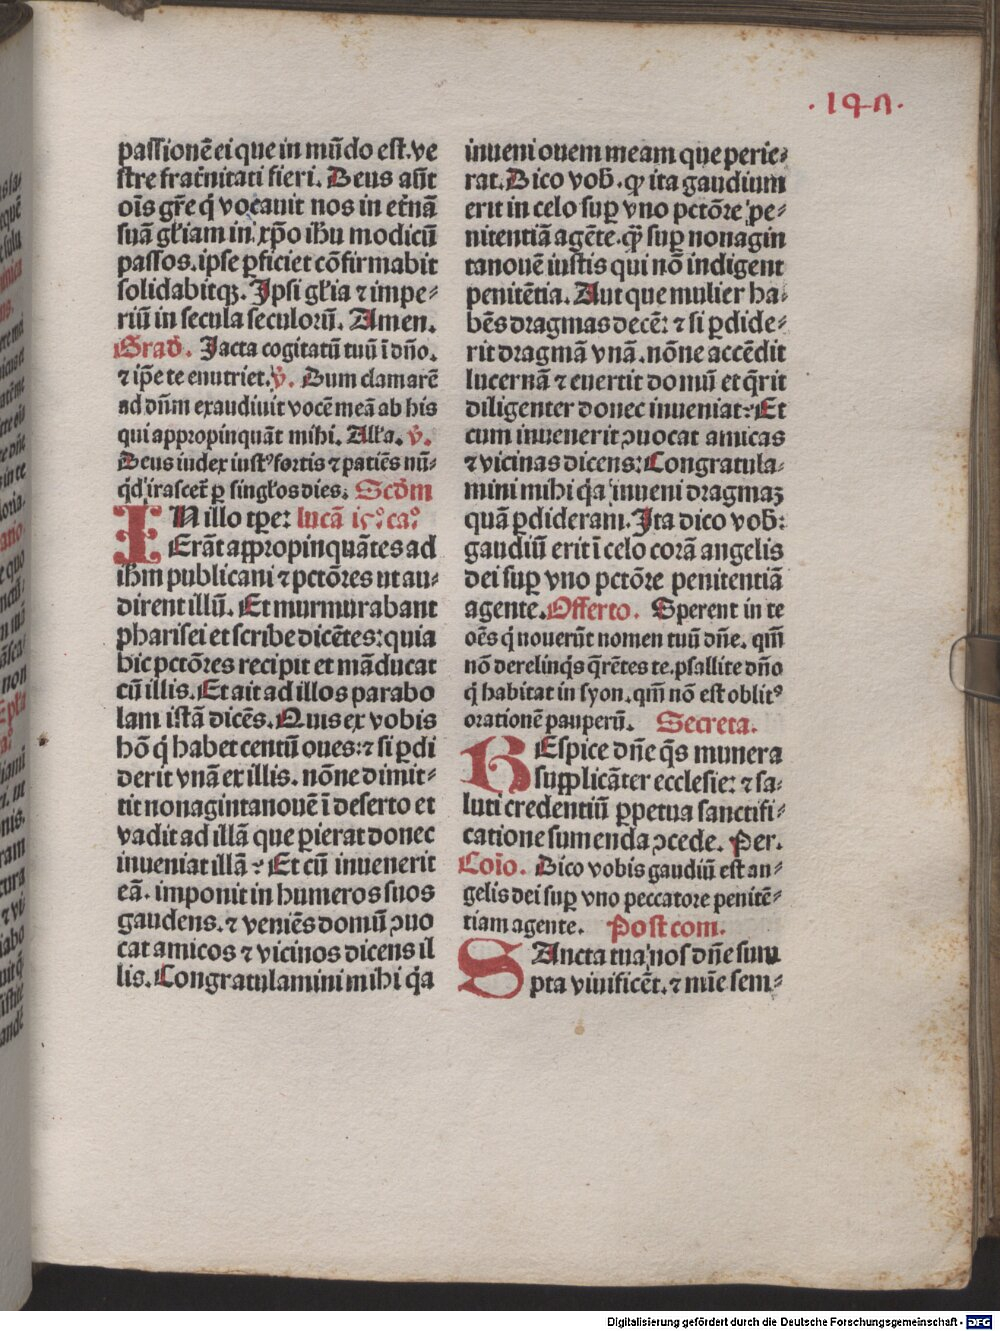 ·147·
passionē ei que in mūdo est. ve
stre frat̄nitati fieri. Deus aūt
oīs gr̄e q̇ vocauit nos in et̄nā
suā gl̓iam in xp̄o ih̄u modicū
passos. ipse ꝑficiet cōfirmabit
solidabitqꝫ. Ipsi gl̓ia ⁊ impe⸗
riū in secula seculorū. Amen.
Grad̓. Jacta cogitatū tuū ī dn̄o.
⁊ ip̄e te enutriet. ℣. Dum clamarē
ad dn̄m exaudiuit vocē meā ab his
qui appropinquāt mihi. All̓a. ℣.
Deus iudex iustꝰ fortis ⁊ patiēs nū⸗
qͥd irascet̄ ꝑ singl̓os dies. Scd̓m
IN illo tꝑe: lucā 15.º ca.º
Erāt aꝓpinquātes ad
ih̄m publicani ⁊ pctōres ut au⸗
dirent illū. Et murmurabant
pharisei et scribe dicētes: quia
hic pctōres recipit et māducat
cū illis. Et ait ad illos parabo
lam istā dicēs. Quis ex vobis
hō q̇ habet centū oues: ⁊ si ꝑdi
derit vnā ex illis. nōne dimit⸗
tit nonagintanouē ī deserto et
vadit ad illā que ꝑierat donec
inueniat illā? Et cū inuenerit
eā. imponit in humeros suos
gaudens. ⁊ veniēs domū ꝯuo
cat amicos ⁊ vicinos dicens il
lis. Congratulamini mihi q̇a
inueni ouem meam que perie⸗
rat. Dico vob̓. ꝙ ita gaudium
erit in celo suꝑ vno pctōre pe⸗
nitentiā agēte. qͣ̄ suꝑ nonagin
tanouē iustis qui nō indigent
penitētia. Aut que mulier ha⸗
bēs dragmas decē: ⁊ si ꝑdide⸗
rit dragmā vnā. nōne accēdit
lucernā ⁊ euertit domū et q̄rit
diligenter donec inueniat? Et
cum inuenerit ꝯuocat amicas
⁊ vicinas dicens: Congratula⸗
mini mihi q̇a inueni dragmaꝫ
quā ꝑdideram. Ita dico vob̓:
gaudiū erit ī celo corā angelis
dei suꝑ vno pctōre penitentiā
agente. Offerto. Sperent in te
oēs q̇ nouerūt nomen tuū dn̄e. qm̄
nō derelinq̇s q̄rētes te. psallite dn̄o
q̇ habitat in syon. qm̄ nō est oblitꝰ
orationē pauperū. Secreta.
REspice dn̄e q̄s munera
supplicāter ecclesie: ⁊ sa⸗
luti credentiū ꝑpetua sanctifi⸗
catione sumenda ꝯcede. Per.
Coīo. Dico vobis gaudiū est an⸗
gelis dei suꝑ vno peccatore penitē⸗
tiam agente. Post com.
SAncta tua nos dn̄e sum
pta viuificēt. ⁊ mīe sem⸗
Digitalisierung gefördert durch die Deutsche Forschungsgemeinschaft - DFG